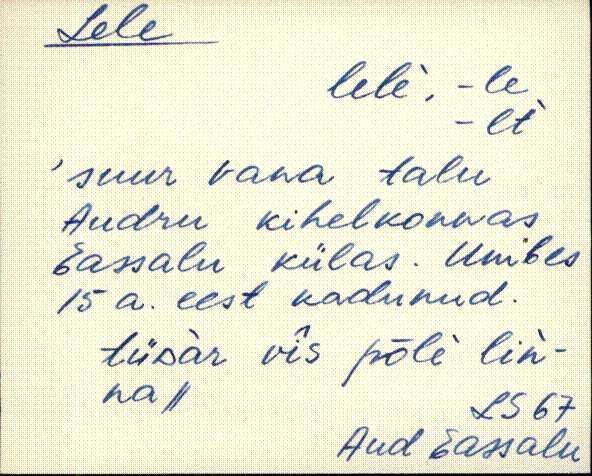 Lele
lelè, -le
-lt̀
'suur vana talu
Audru kihelkonnas
Eassalu külas. Umbes
15 a. eest kadunud.
tüDÀr vîs põlè lin̄-
na //
LS 67
Aud Eassalu